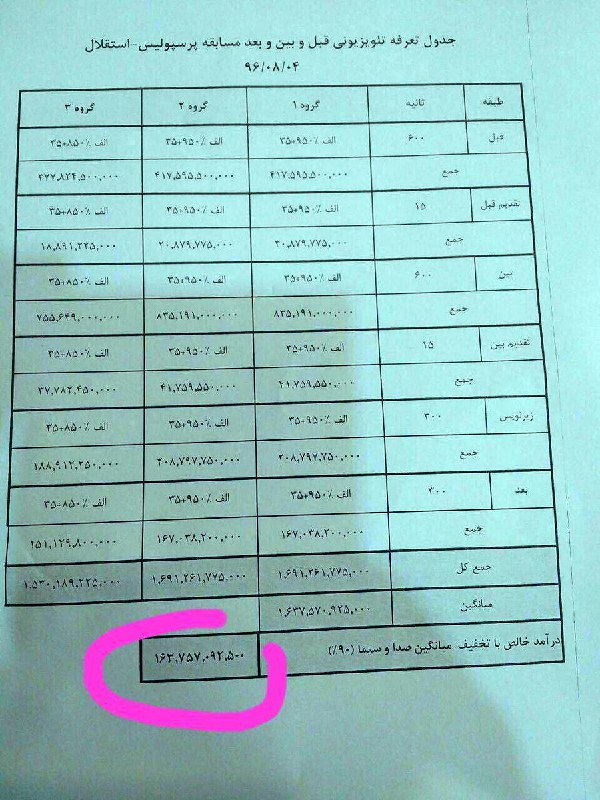 جدول تعرفه تلویزیونی قبل و بین و بعد مسابقه پرسپولیس-استقلال
۹۶/۰۸/۰۴
طبقه ثانیه گروه ۱ گروه ۲ گروه ۳
قبل ۶۰۰ الف ٪۹۵۰+۳۵ الف ٪۹۵۰+۳۵ الف ٪۸۵۰+۳۵
جمع ۴۱۷,۵۹۵,۵۰۰,۰۰۰ ۴۱۷,۵۹۵,۵۰۰,۰۰۰ ۳۷۷,۸۲۴,۵۰۰,۰۰۰
تقدیم قبل ۱۵ الف ٪۹۵۰+۳۵ الف ٪۹۵۰+۳۵ الف ٪۸۵۰+۳۵
جمع ۲۰,۸۷۹,۷۷۵,۰۰۰ ۲۰,۸۷۹,۷۷۵,۰۰۰ ۱۸,۸۹۱,۲۲۵,۰۰۰
بین ۶۰۰ الف ٪۹۵۰+۳۵ الف ٪۹۵۰+۳۵ الف ٪۸۵۰+۳۵
جمع ۸۳۵,۱۹۱,۰۰۰,۰۰۰ ۸۳۵,۱۹۱,۰۰۰,۰۰۰ ۷۵۵,۶۴۹,۰۰۰,۰۰۰
تقدیم بین ۱۵ الف ٪۹۵۰+۳۵ الف ٪۹۵۰+۳۵ الف ٪۸۵۰+۳۵
جمع ۴۱,۷۵۹,۵۵۰,۰۰۰ ۴۱,۷۵۹,۵۵۰,۰۰۰ ۳۷,۷۸۲,۴۵۰,۰۰۰
زیرنویس ۳۰۰ الف ٪۹۵۰+۳۵ الف ٪۹۵۰+۳۵ الف ٪۸۵۰+۳۵
جمع ۲۰۸,۷۹۷,۷۵۰,۰۰۰ ۲۰۸,۷۹۷,۷۵۰,۰۰۰ ۱۸۸,۹۱۲,۲۵۰,۰۰۰
بعد الف ٪۹۵۰+۳۵ الف ٪۹۵۰+۳۵ الف ٪۸۵۰+۳۵
جمع ۱۶۷,۰۳۸,۲۰۰,۰۰۰ ۱۶۷,۰۳۸,۲۰۰,۰۰۰ ۱۵۱,۱۲۹,۸۰۰,۰۰۰
جمع کل ۱,۶۹۱,۲۶۱,۷۷۵,۰۰۰ ۱,۶۹۱,۲۶۱,۷۷۵,۰۰۰ ۱,۵۳۰,۱۸۹,۲۲۵,۰۰۰
میانگین ۱,۶۳۷,۵۷۰,۹۲۵,۰۰۰
درآمد خالص با تخفیف میانگین صدا و سیما (۹۰٪) ۱۶۳,۷۵۷,۰۹۲,۵۰۰